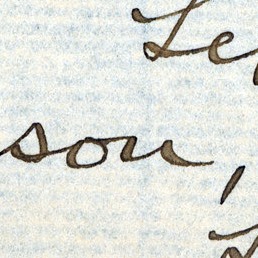 Le
son,